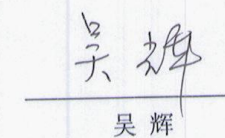 吴辉
吴 辉